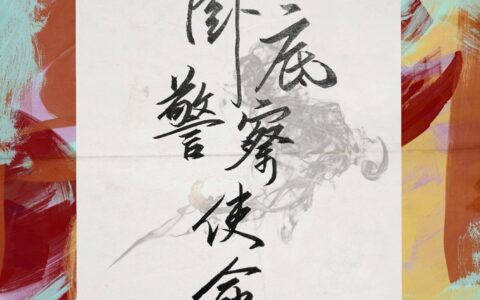 卧底
警察
使命